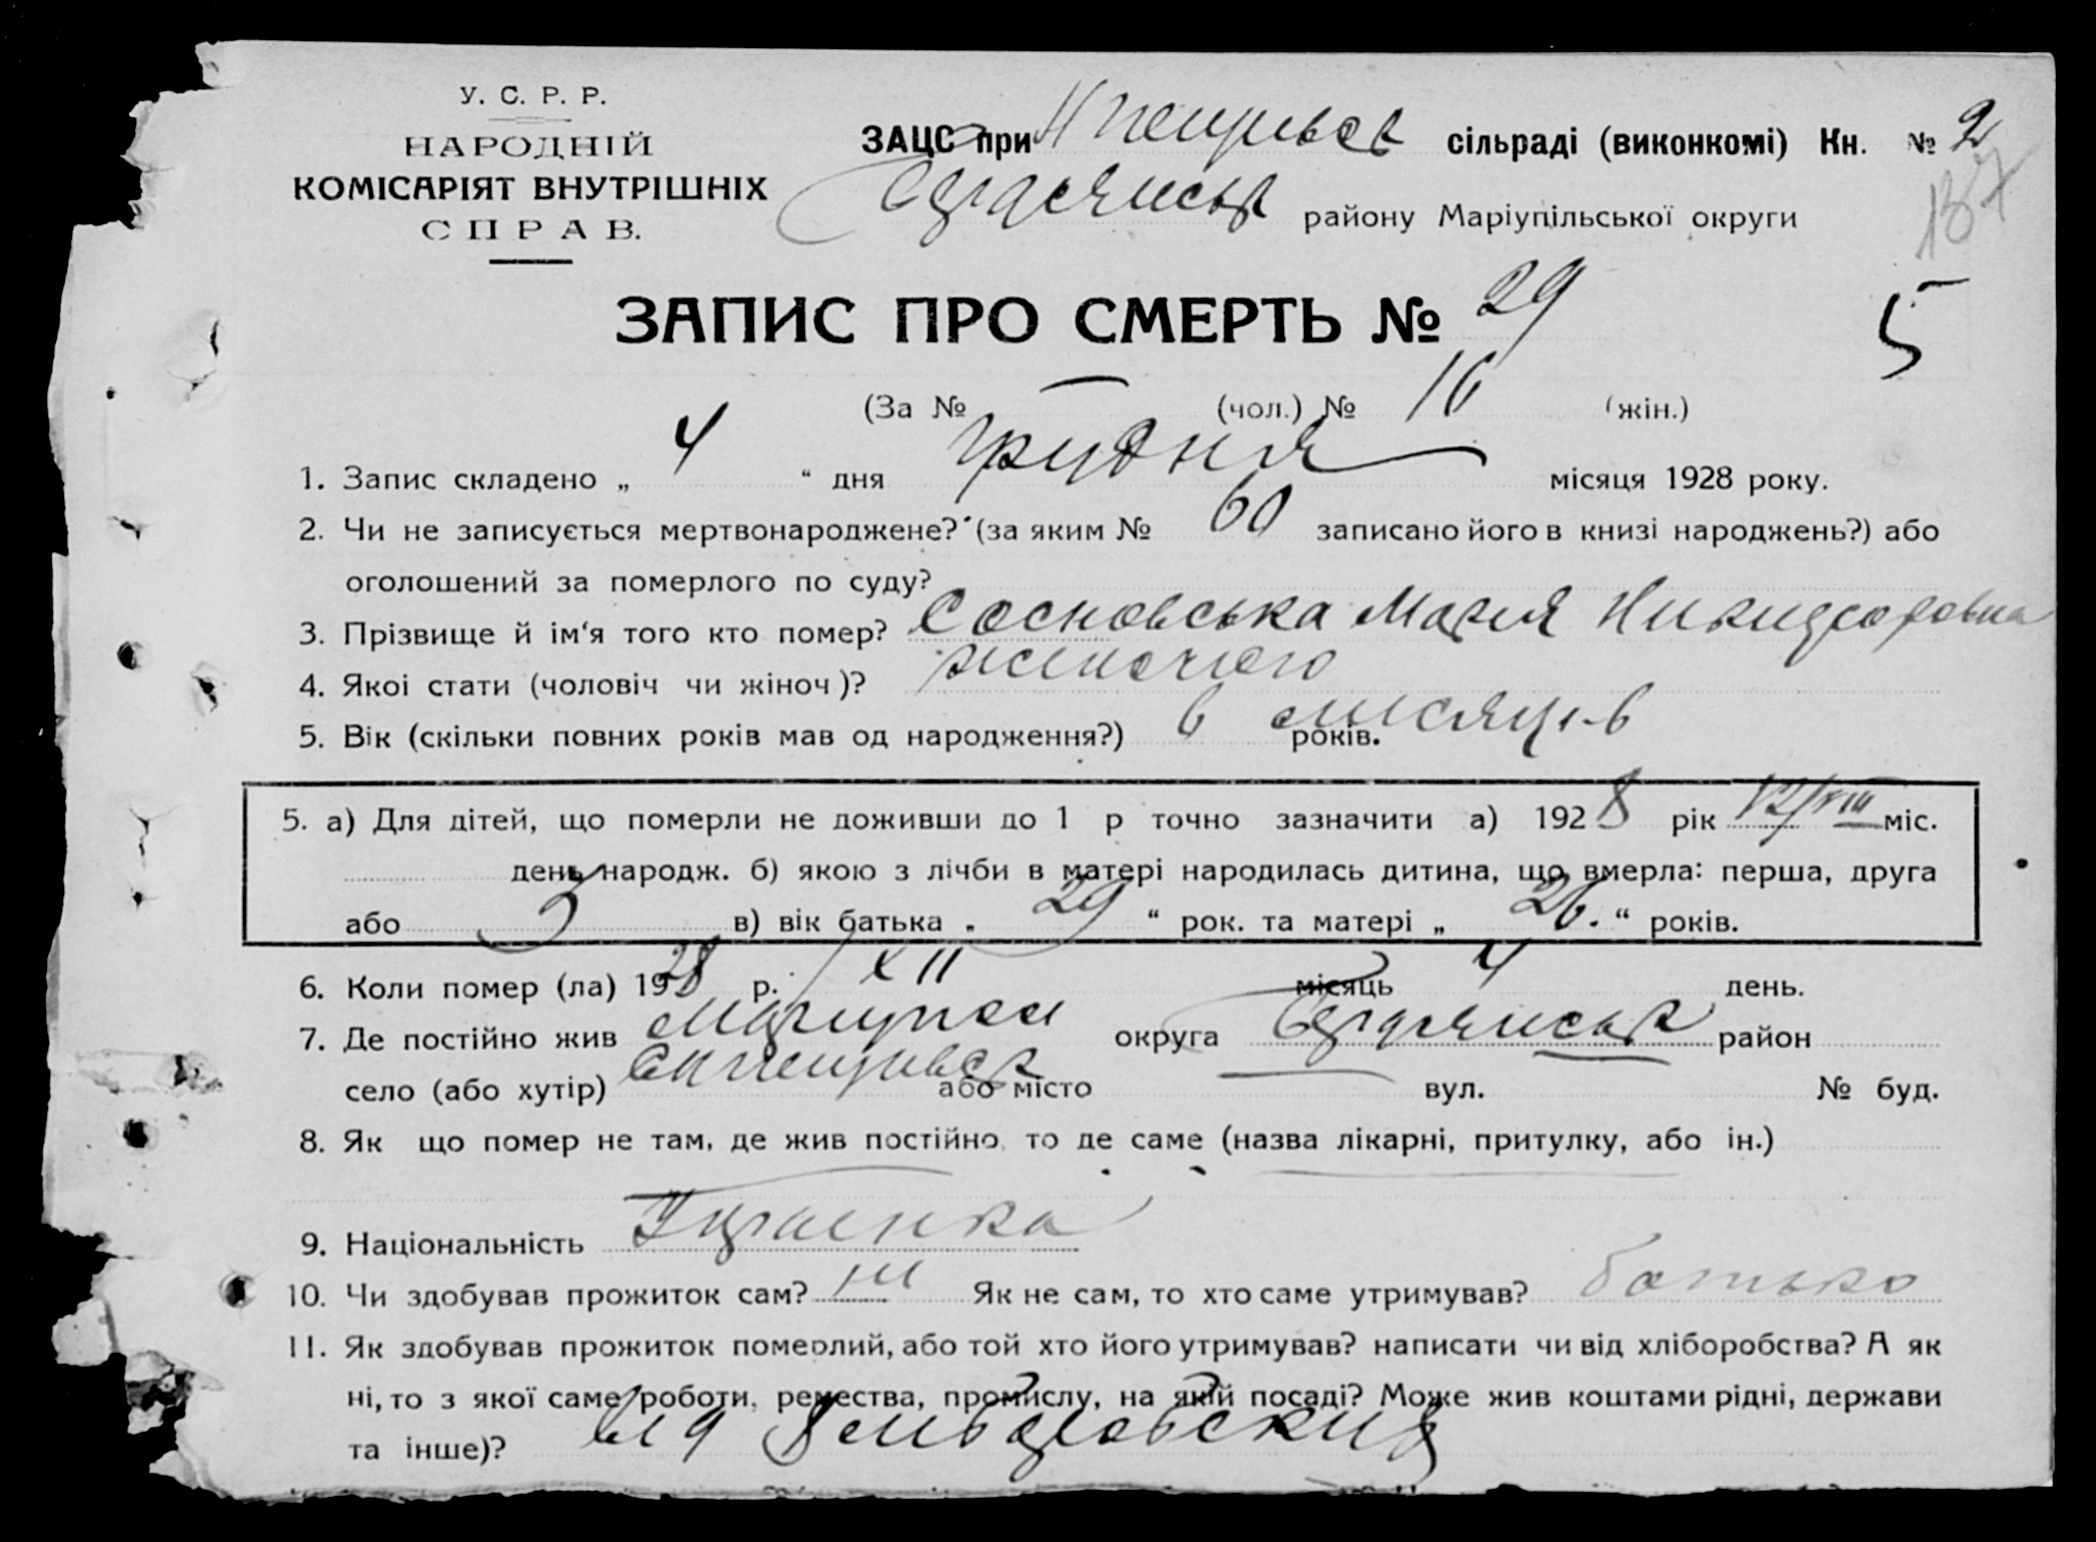 У. С. Р. Р.
НАРОДНІЙ
КОМІСАРІЯТ ВНУТРІШНІХ
СПРАВ.
ЗАЦС при сільраді (виконкомі) Кн. № 2
137
району Маріупільської округи
ЗАПИС ПРО СМЕРТЬ № 29
5
(За № — (чол.) № 16 (жін.)
1. Запис складено „ 4 “ дня грудня місяця 1928 року.
2. Чи не записується мертвонароджене? (за яким № 60 записано його в книзі народжень?) або
оголошений за померлого по суду?
3. Прізвище й ім‘я того кто помер? Сосновська Мария
4. Якоі стати (чоловіч чи жіноч)? жіночого
5. Вік (скільки повних років мав од народження?) 6 місяців років.
5. а) Для дітей, що померли не доживши до 1 р точно зазначити а) 1928 рік 12/VIII міс.
день народж. б) якою з лічби в матері народилась дитина, що вмерла: перша, друга
або 3 в) вік батька „ 29 “ рок. та матері „ 26. “ років.
6. Коли помер (ла) 1928 р. XII місяць 4 день.
7. Де постійно жив округа район
село (або хутір) або місто — вул. № буд.
8. Як що помер не там, де жив постійно, то де саме (назва лікарні, притулку, або ін.)
9. Національність Украенка
10. Чи здобував прожиток сам? ні Як не сам, то хто саме утримував? батько
11. Як здобував прожиток померлий, або той хто його утримував? написати чи від хліборобства? А як
ні, то з якої саме роботи, ремества, промислу, на якій посаді? Може жив коштами рідні, держави
та інше)?